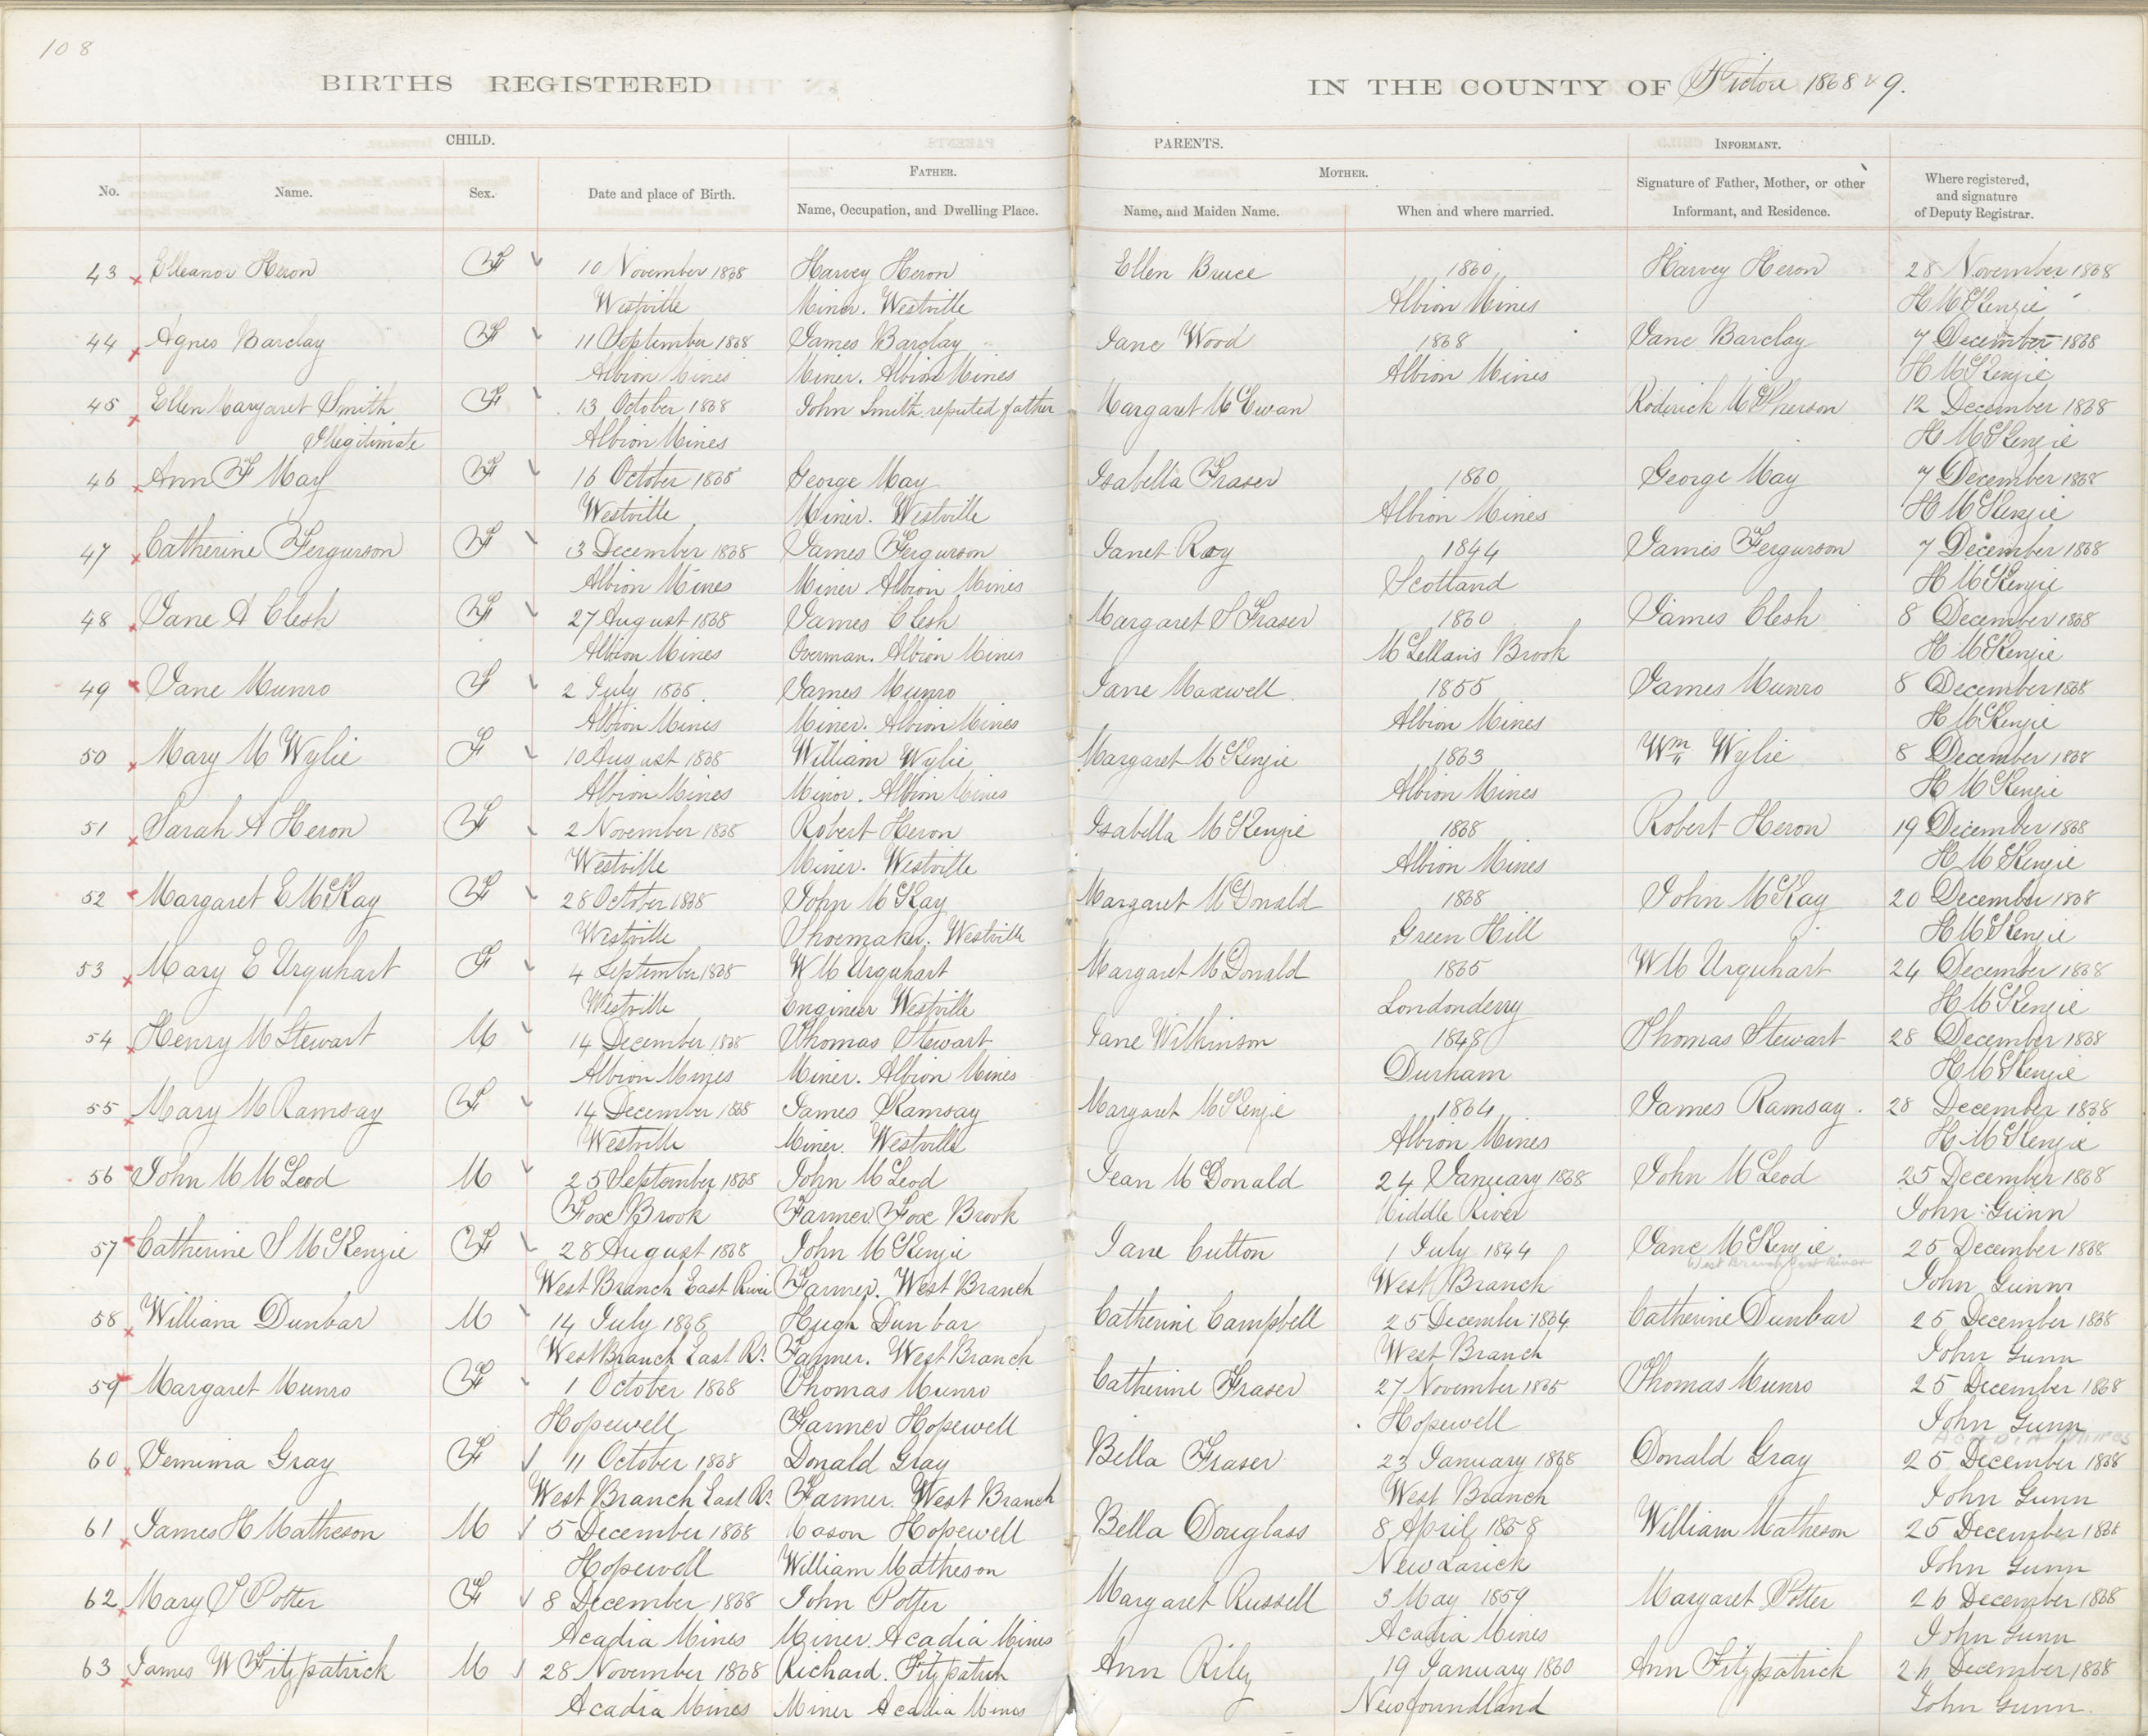 108
BIRTHS REGISTERED IN THE COUNTY OF Pictou 1868 & 9.
CHILD. PARENTS. INFORMANT.
FATHER. MOTHER.
No. Name. Sex. Date and place of Birth. Name, Occupation, and Dwelling Place. Name, and Maiden Name. When and where married. Signature of Father, Mother, or other Informant, and Residence. Where registered, and signature of Deputy Registrar.
43 Elleanor Heron F 10 November 1868 Harvey Heron Ellen Bruce 1860 Harvey Heron 28 November 1868
Westville Miner. Westville Albion Mines H McKenzie
44 Agnes Barclay F 11 September 1868 James Barclay Jane Wood 1868 Jane Barclay 7 December 1868
Albion Mines Miner. Albion Mines Albion Mines H McKenzie
45 Ellen Margaret Smith F 13 October 1868 John Smith reputed father Margaret McEwan Roderick McPherson 12 December 1868
Illegitimate Albion Mines H McKenzie
46 Ann F May F 16 October 1868 George May Isabella Fraser 1860 George May 7 December 1868
Westville Miner. Westville Albion Mines H McKenzie
47 Catherine Fergurson F 3 December 1868 James Fergurson Janet Roy 1844 James Fergurson 7 December 1868
Albion Mines Miner Albion Mines Scotland H McKenzie
48 Jane A Clish F 27 August 1868 James Clish Margaret S Fraser 1860 James Clish 8 December 1868
Albion Mines Overman. Albion Mines McLellan's Brook H McKenzie
49 Jane Munro F 2 July 1868. James Munro Jane Maxwell 1855 James Munro 8 December 1868
Albion Mines Miner. Albion Mines Albion Mines H McKenzie
50 Mary M Wylie F 10 August 1868 William Wylie Margaret McKenzie 1863 Wm Wylie 8 December 1868
Albion Mines Minor. Albion Mines Albion Mines H McKenzie
51 Sarah A Heron F 2 November 1868 Robert Heron Isabella McKenzie 1868 Robert Heron 19 December 1868
Westville Miner. Westville Albion Mines H McKenzie
52 Margaret E McKay F 28 October 1868 John McKay Margaret McDonald 1868 John McKay 20 December 1868
Westville Shoemaker. Westville Green Hill H McKenzie
53 Mary E Urquhart F 4 September 1868 W M Urquhart Margaret McDonald 1865 W M Urquhart 24 December 1868
Westville Engineer Westville Londonderry H McKenzie
54 Henry M Stewart M 14 December 1868 Thomas Stewart Jane Wilkinson 1848 Thomas Stewart 28 December 1868
Albion Mines Miner. Albion Mines Durham H McKenzie
55 Mary M Ramsay F 14 December 1868 James Ramsay Margaret McKenzie 1864 James Ramsay. 28 December 1868
Westville Miner. Westville Albion Mines H McKenzie
56 John M McLeod M 25 September 1868 John McLeod Jean McDonald 24 January 1868 John McLeod 25 December 1868
Fox Brook Farmer Fox Brook Middle River John Gunn
57 Catherine S McKenzie F 28 August 1868 John McKenzie Jane Cutton 1 July 1844 Jane McKenzie. 25 December 1868
West Branch East River Farmer. West Branch West Branch West Branch East River John Gunn
58 William Dunbar M 14 July 1868 Hugh Dunbar Catherine Campbell 25 December 1864 Catherine Dunbar 25 December 1868
West Branch East Rr. Farmer. West Branch West Branch John Gunn
59 Margaret Munro F 1 October 1868 Thomas Munro Catherine Fraser 27 November 1865 Thomas Munro 25 December 1868
Hopewell Farmer Hopewell Hopewell John Gunn
60 Jemima Gray F 11 October 1868 Donald Gray Bella Fraser 23 January 1868 Donald Gray 25 December 1868
West Branch East Rr. Farmer. West Branch West Branch John Gunn
61 James H Matheson M 5 December 1868 Mason Hopewell Bella Douglass 8 April 1858 William Matheson 25 December 1868
Hopewell William Matheson New Larick John Gunn
62 Mary S Potter F 8 December 1868 John Potter Margaret Russell 3 May 1859 Margaret Potter 26 December 1868
Acadia Mines Miner. Acadia Mines Acadia Mines John Gunn
63 James W Fitzpatrick M 28 November 1868 Richard. Fitzpatrick Ann Rily 19 January 1860 Ann Fitzpatrick 26 December 1868
Acadia Mines Miner Acadia Mines Newfoundland John Gunn.